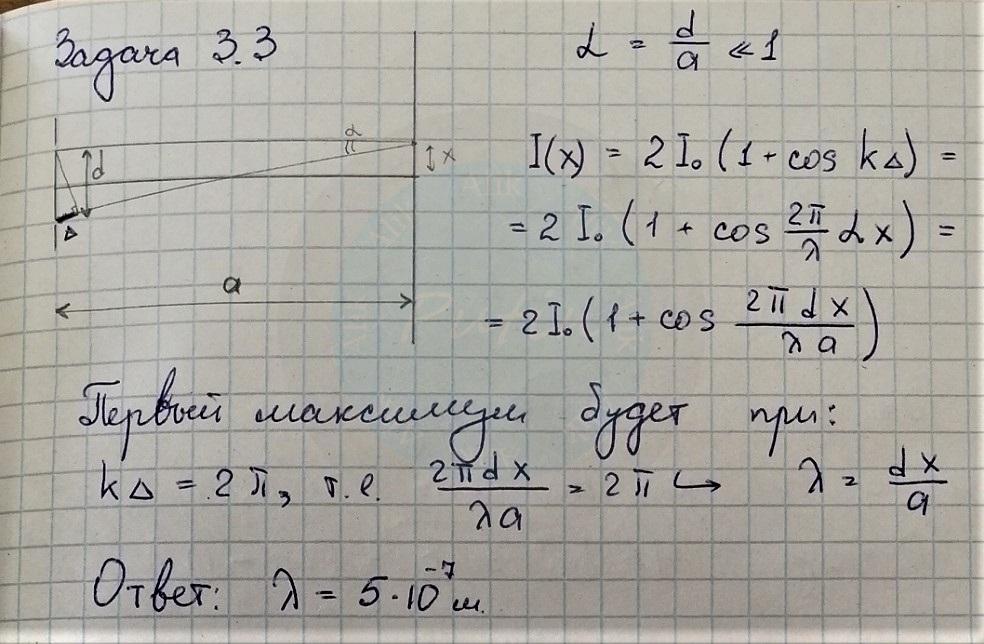 Задача 3.3
α = d/a ≪ 1
d
α
x
Δ
a
I(x) = 2I₀ (1 + cos kΔ) =
= 2 I₀ (1 + cos 2π/λ α x) =
= 2I₀ (1 + cos 2π d x / λ a)
Первый максимум будет при:
kΔ = 2π, т.е. 2π d x / λ a = 2π ↪ λ = d x / a
Ответ: λ = 5·10⁻⁷ м.